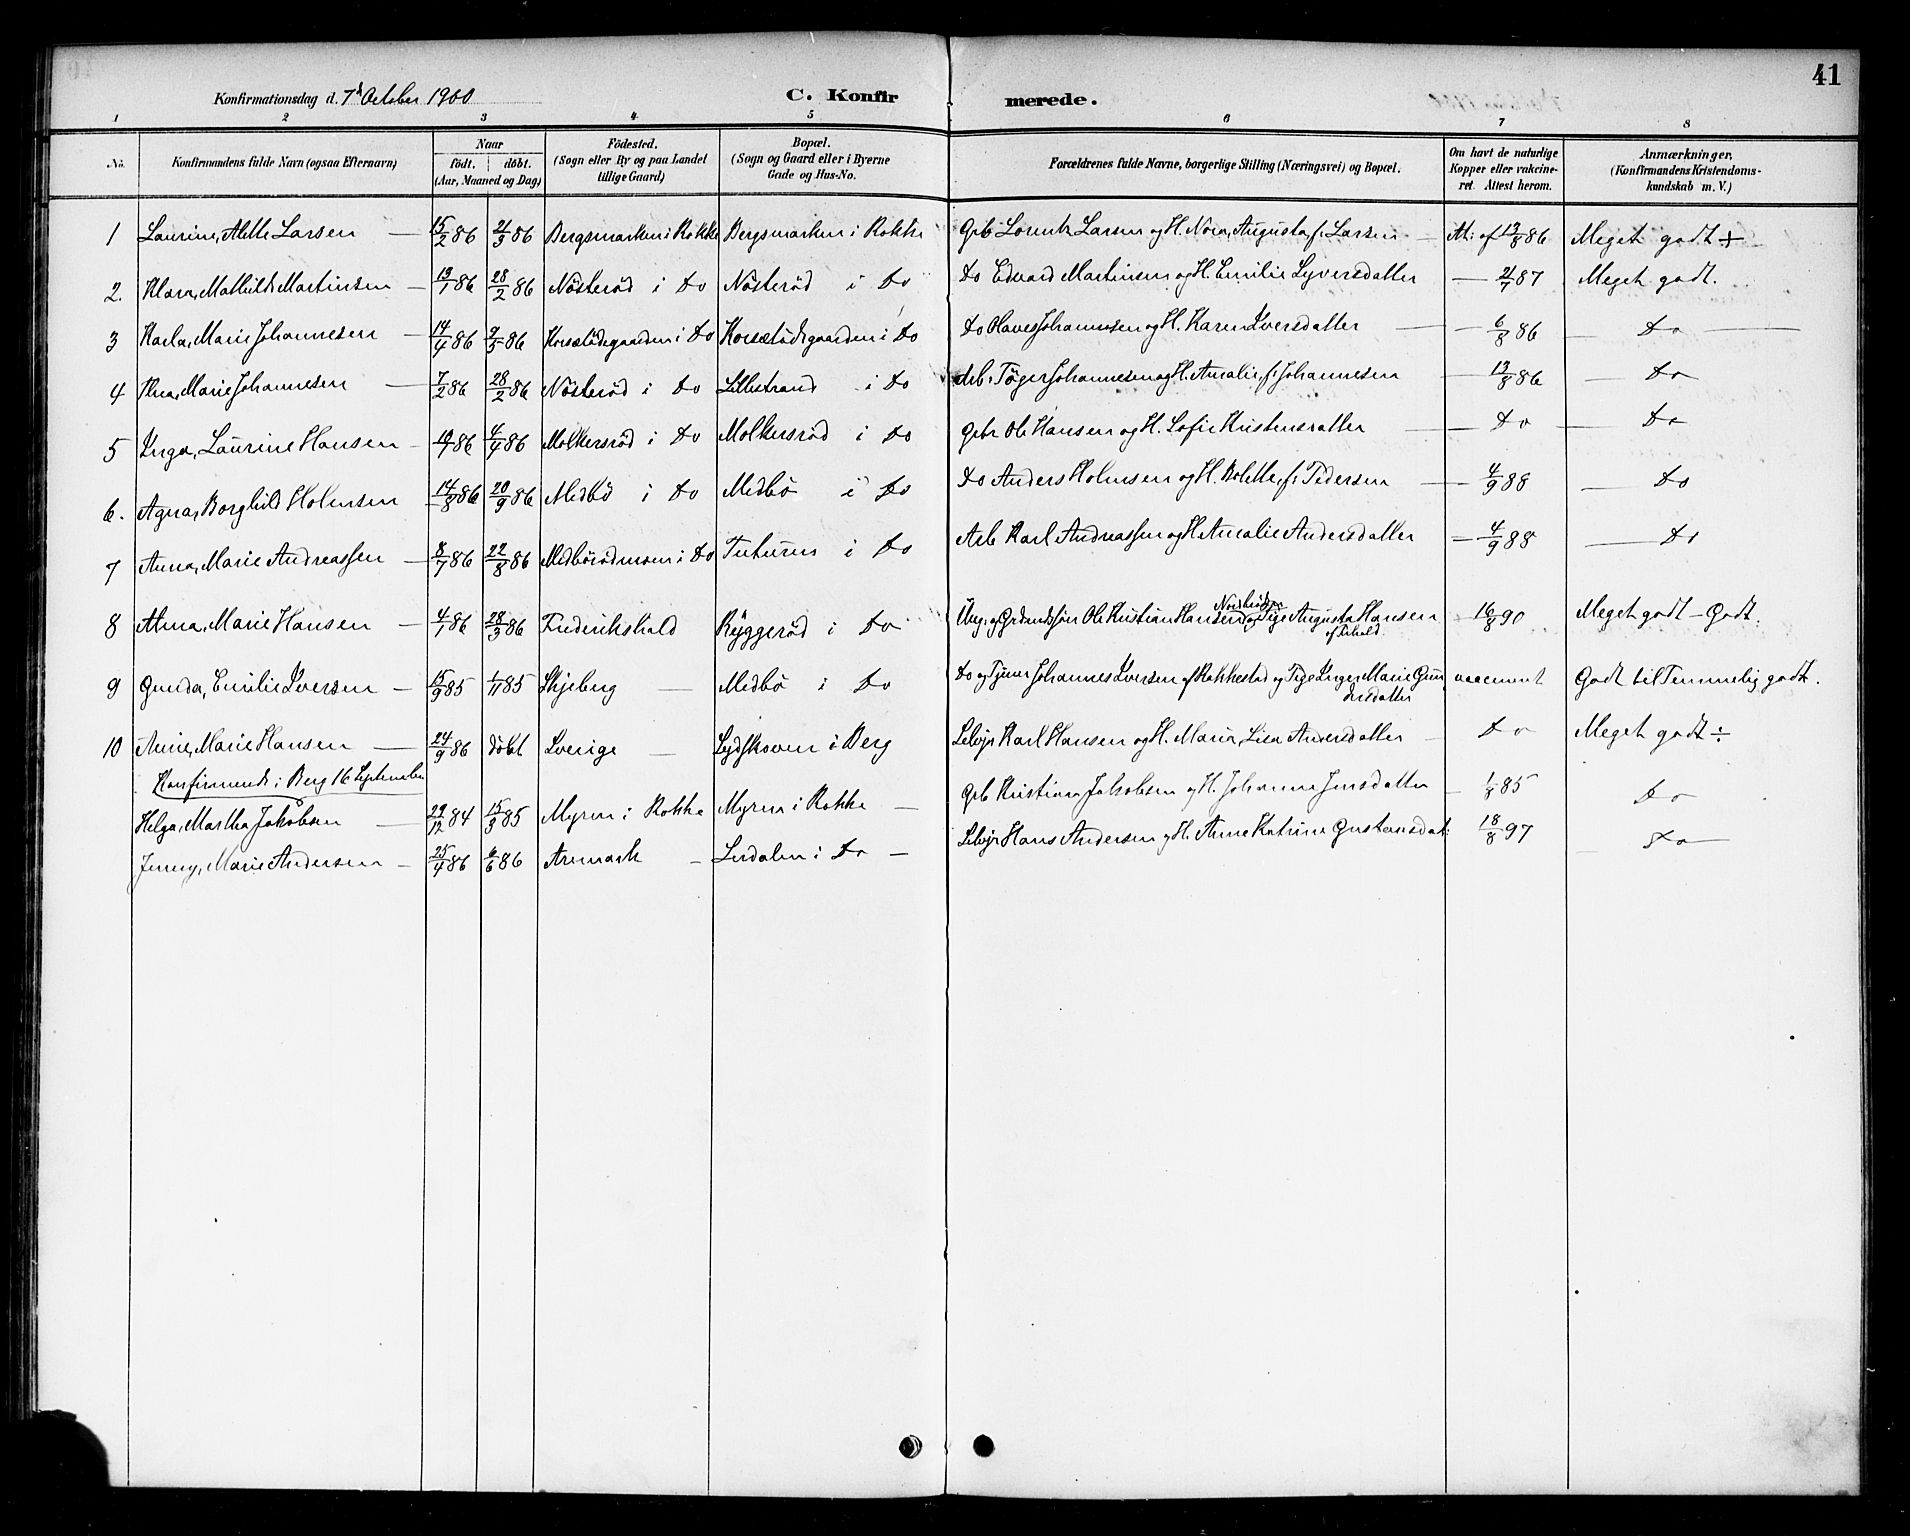 41
Konfirmationsdag d. 7d October 1900 C. Konfirmerede.
1 2 3 4 5 6 7 8
No. Konfirmandens fulde Navn (ogsaa Efternavn) Naar födt. döbt. (Aar, Maaned og Dag) Födested. (Sogn eller By og paa Landet tillige Gaard) Bopæl. (Sogn og Gaard eller i Byerne Gade og Hus-No. Forældrenes fulde Navne, borgerlige Stilling (Næringsvei) og Bopæl. Om havt de naturlige Kopper eller vakcineret. Attest herom. Anmærkninger, (Konfirmandens Kristendomskundskab m. V.)
1 Laurine, Alette Larsen 15/2 86 21/3 86 Bergsmarken i Rokke Bergsmarken i Rokke Grb Lorentz Larsen og H. Nora, Augusta f: Larsen At: af 13/8 86 Meget godt +
2. Klara, Mathilde Martinsen 13/1 86 28/2 86 Nösteröd i Do Nösteröd i Do Do Edvard Martinsen og H. Emilie Syversdatter 2/7 87 Meget godt.
3 Karla, Marie Johannesen 14/4 86 2/5 86 Korsetödegaarden i Do Korsetödegaarden i Do Do Olaves Johannesen og H. Karen Iversdatter 6/8 86 Do
4 Marie Johannesen 7/2 86 28/2 86 Nösteröd i Do Lillestrand i Do Arb: Töger Johannesen og H. Amalie, f: Johannesen 13/8 86 Do
5 Inga, Laurine Hansen 19/1 86 4/4 86 Molkersröd i Do Molkersröd i Do Grbr Ole Hansen og H. Sofie Kristensdatter Do Do
6. Agna, Borghild Holmsen 14/8 86 20/9 86 Medbö i Do Medbö i Do Do Anders Holmsen og H. Bolette, f: Pedersen 4/9 88 Do
7 Anna, Marie Andreassen 8/7 86 22/8 86 Medbörödmoen i Do i Do Arb Karl Andreassen og H. Amalie Andersdatter 4/9 88 Do
8 Alma, Marie Hansen 4/1 86 28/3 86 Frederikshald Ryggeröd i Do Ung: og Grdmdssön Ole Kristian Hansen og Pige Augusta Hansen af Frhald 16/8 90 Meget godt - Godt.
9 Gunda, Emilie Iversen 15/9 85 1/11 85 Skjeberg Medbö i Do Do og Tjener Johannes Iversen af Rakkestad og Pige Inger Marie Gundersdatter Godt til Temmelig godt.
10 Anne, Marie Hansen 24/9 86 döbt Sverige Lydskoven i Berg Selvjr Karl Hansen og H. Maria, Lisa Andersdatter Do Meget godt ÷
Konfirmerede i Berg 16 September
Helga, Martha Jakobsen 29/12 84 15/3 85 Myren i Rokke Myren i Rokke Grb Kristian Jakobsen og H. Johanne Jensdatter 1/8 85 Do
Jenny, Marie Andersen 25/4 86 6/6 86 Aremark Lerdalen i Do Selvjr Hans Andersen og H. Anne Katrine Gustavsdat: 18/8 97 Do